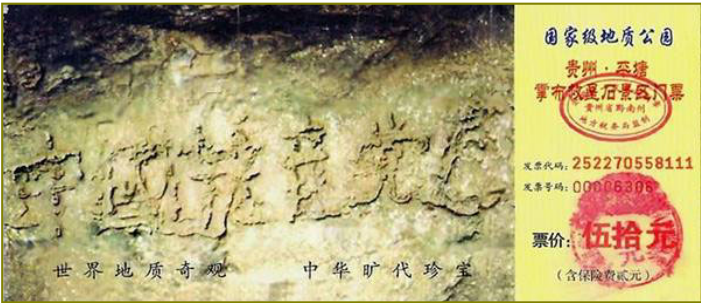 中国共产党
世界地质奇观 中华旷代珍宝
国家级地质公园
贵州·平塘
掌布救星石景区门票
贵州省黔南州
地方税务局监制
发票代码：252270558111
发票号码：00006306
票价：伍拾元
（含保险费贰元）